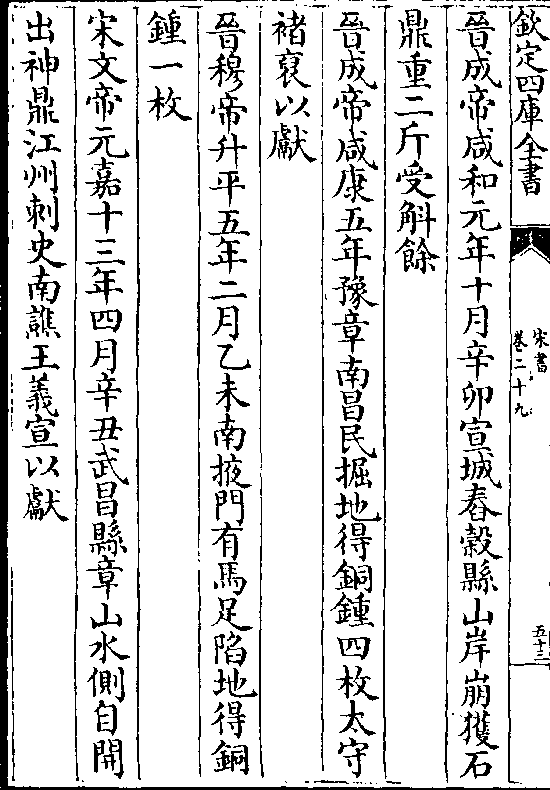 欽定四庫全書
宋書
卷二十九
五十三
晉成帝咸和元年十月辛卯宣城舂穀縣山岸崩獲石
鼎重二斤受斛餘
晉成帝咸康五年豫章南昌民掘地得銅鍾四枚太守
褚裒以獻
晉穆帝升平五年二月乙未南掖門有馬足陷地得銅
鍾一枚
宋文帝元嘉十三年四月辛丑武昌縣章山水側自開
出神鼎江州刺史南譙王義宣以獻